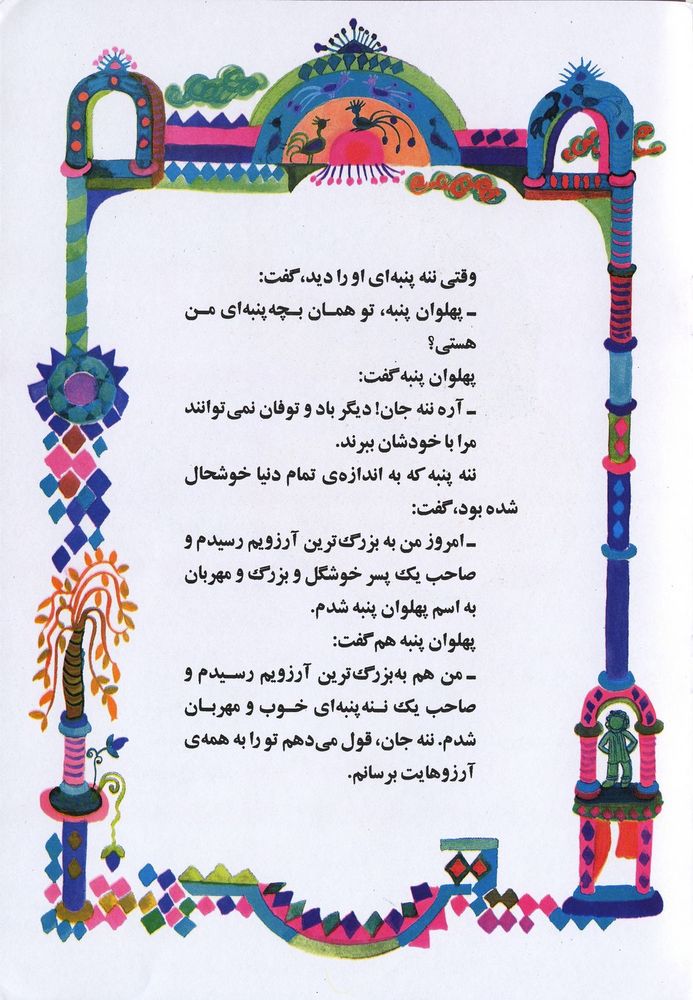 وقتی ننه پنبه‌ای او را دید، گفت:
ـ پهلوان پنبه، تو همان بچه‌پنبه‌ای من
هستی؟
پهلوان پنبه گفت:
ـ آره ننه جان! دیگر باد و توفان نمی‌توانند
مرا با خودشان ببرند.
ننه پنبه که به اندازه‌ی تمام دنیا خوشحال
شده بود، گفت:
ـ امروز من به بزرگ‌ترین آرزویم رسیدم و
صاحب یک پسر خوشگل و بزرگ و مهربان
به اسم پهلوان پنبه شدم.
پهلوان پنبه هم گفت:
ـ من هم به‌بزرگ‌ترین آرزویم رسیدم و
صاحب یک ننه‌پنبه‌ای خوب و مهربان
شدم. ننه جان، قول می‌دهم تو را به همه‌ی
آرزوهایت برسانم.